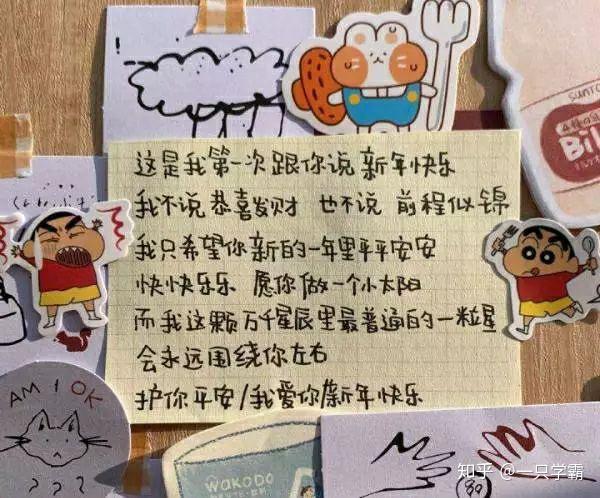 这是我第一次跟你说新年快乐
我不说恭喜发财 也不说 前程似锦
我只希望你新的一年里平平安安
快快乐乐 愿你做一个小太阳
而我这颗万千星辰里最普通的一粒星
会永远围绕你左右
护你平安/我爱你/新年快乐
!
sunto
Bil
AM I OK
? ? ?
wakodo
知乎 @一只学霸